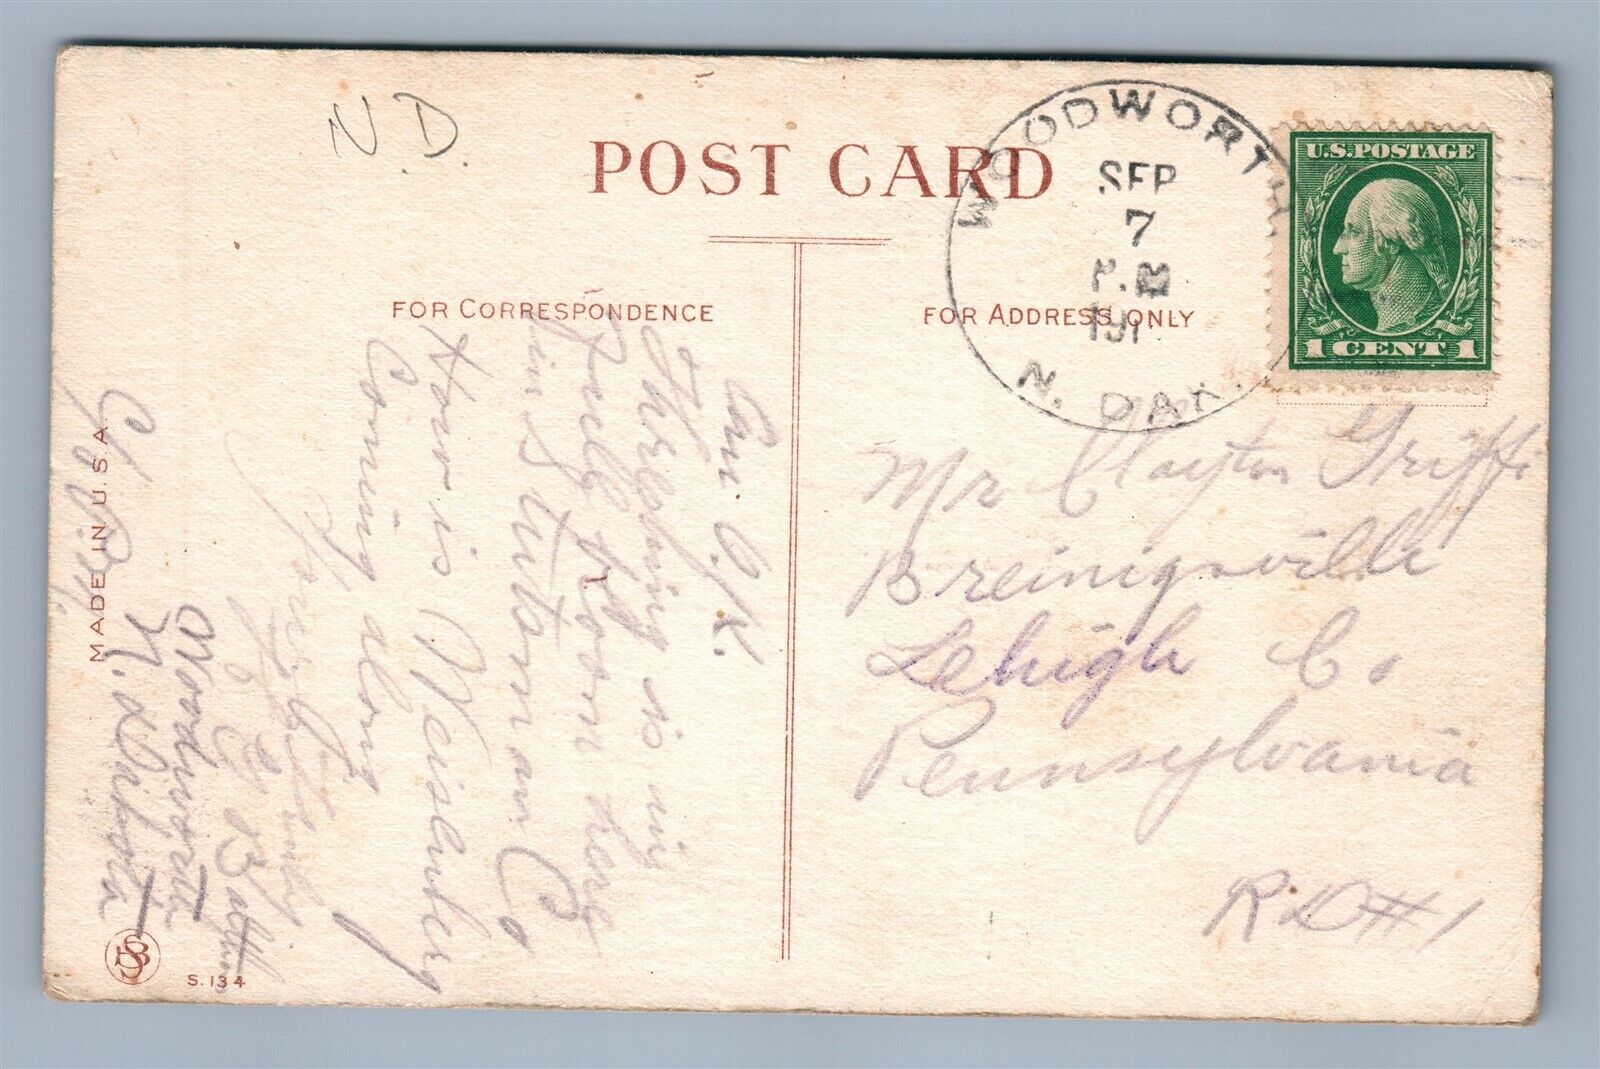 N.D.
POST CARD
WOODWORTH
SEP
7
P.M
191
N. DAK.
U.S. POSTAGE
1 CENT 1
FOR CORRESPONDENCE
FOR ADDRESS ONLY
Am O.K.
Threshing is in
full swing here
in Stutsman Co
How is Weisenberg
Coming along
Yours
Woodworth
N. Dakota
Mr Clayton Griffi
Breinigsville
Lehigh Co
Pennsylvania
R D #1
MADE IN U.S.A.
S. 134